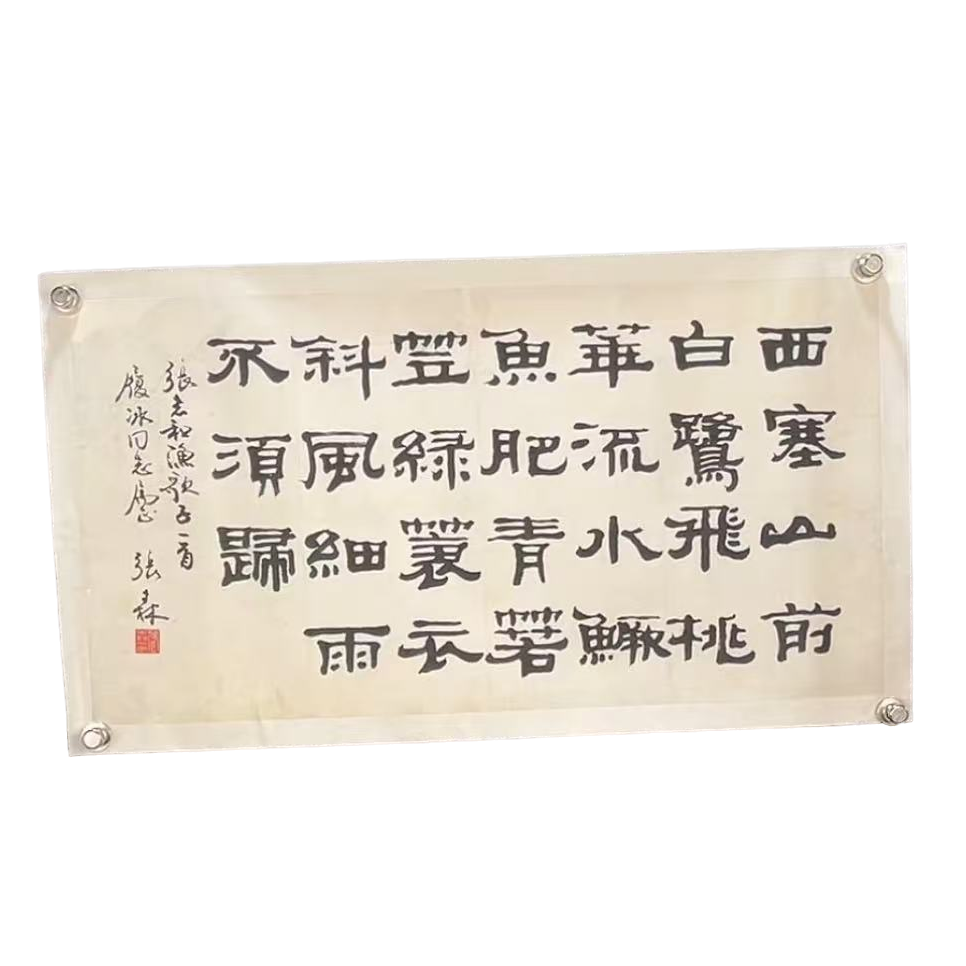 西塞山前
白鷺飛桃
華流水鱖
魚肥青箬
笠綠蓑衣
斜風細雨
不須歸
張志和漁歌子一首
履冰同志屬 張森